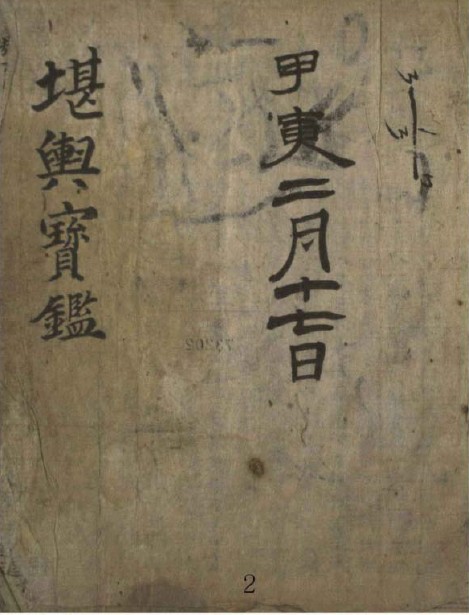 甲寅二月十七日
堪輿寶鑑
2